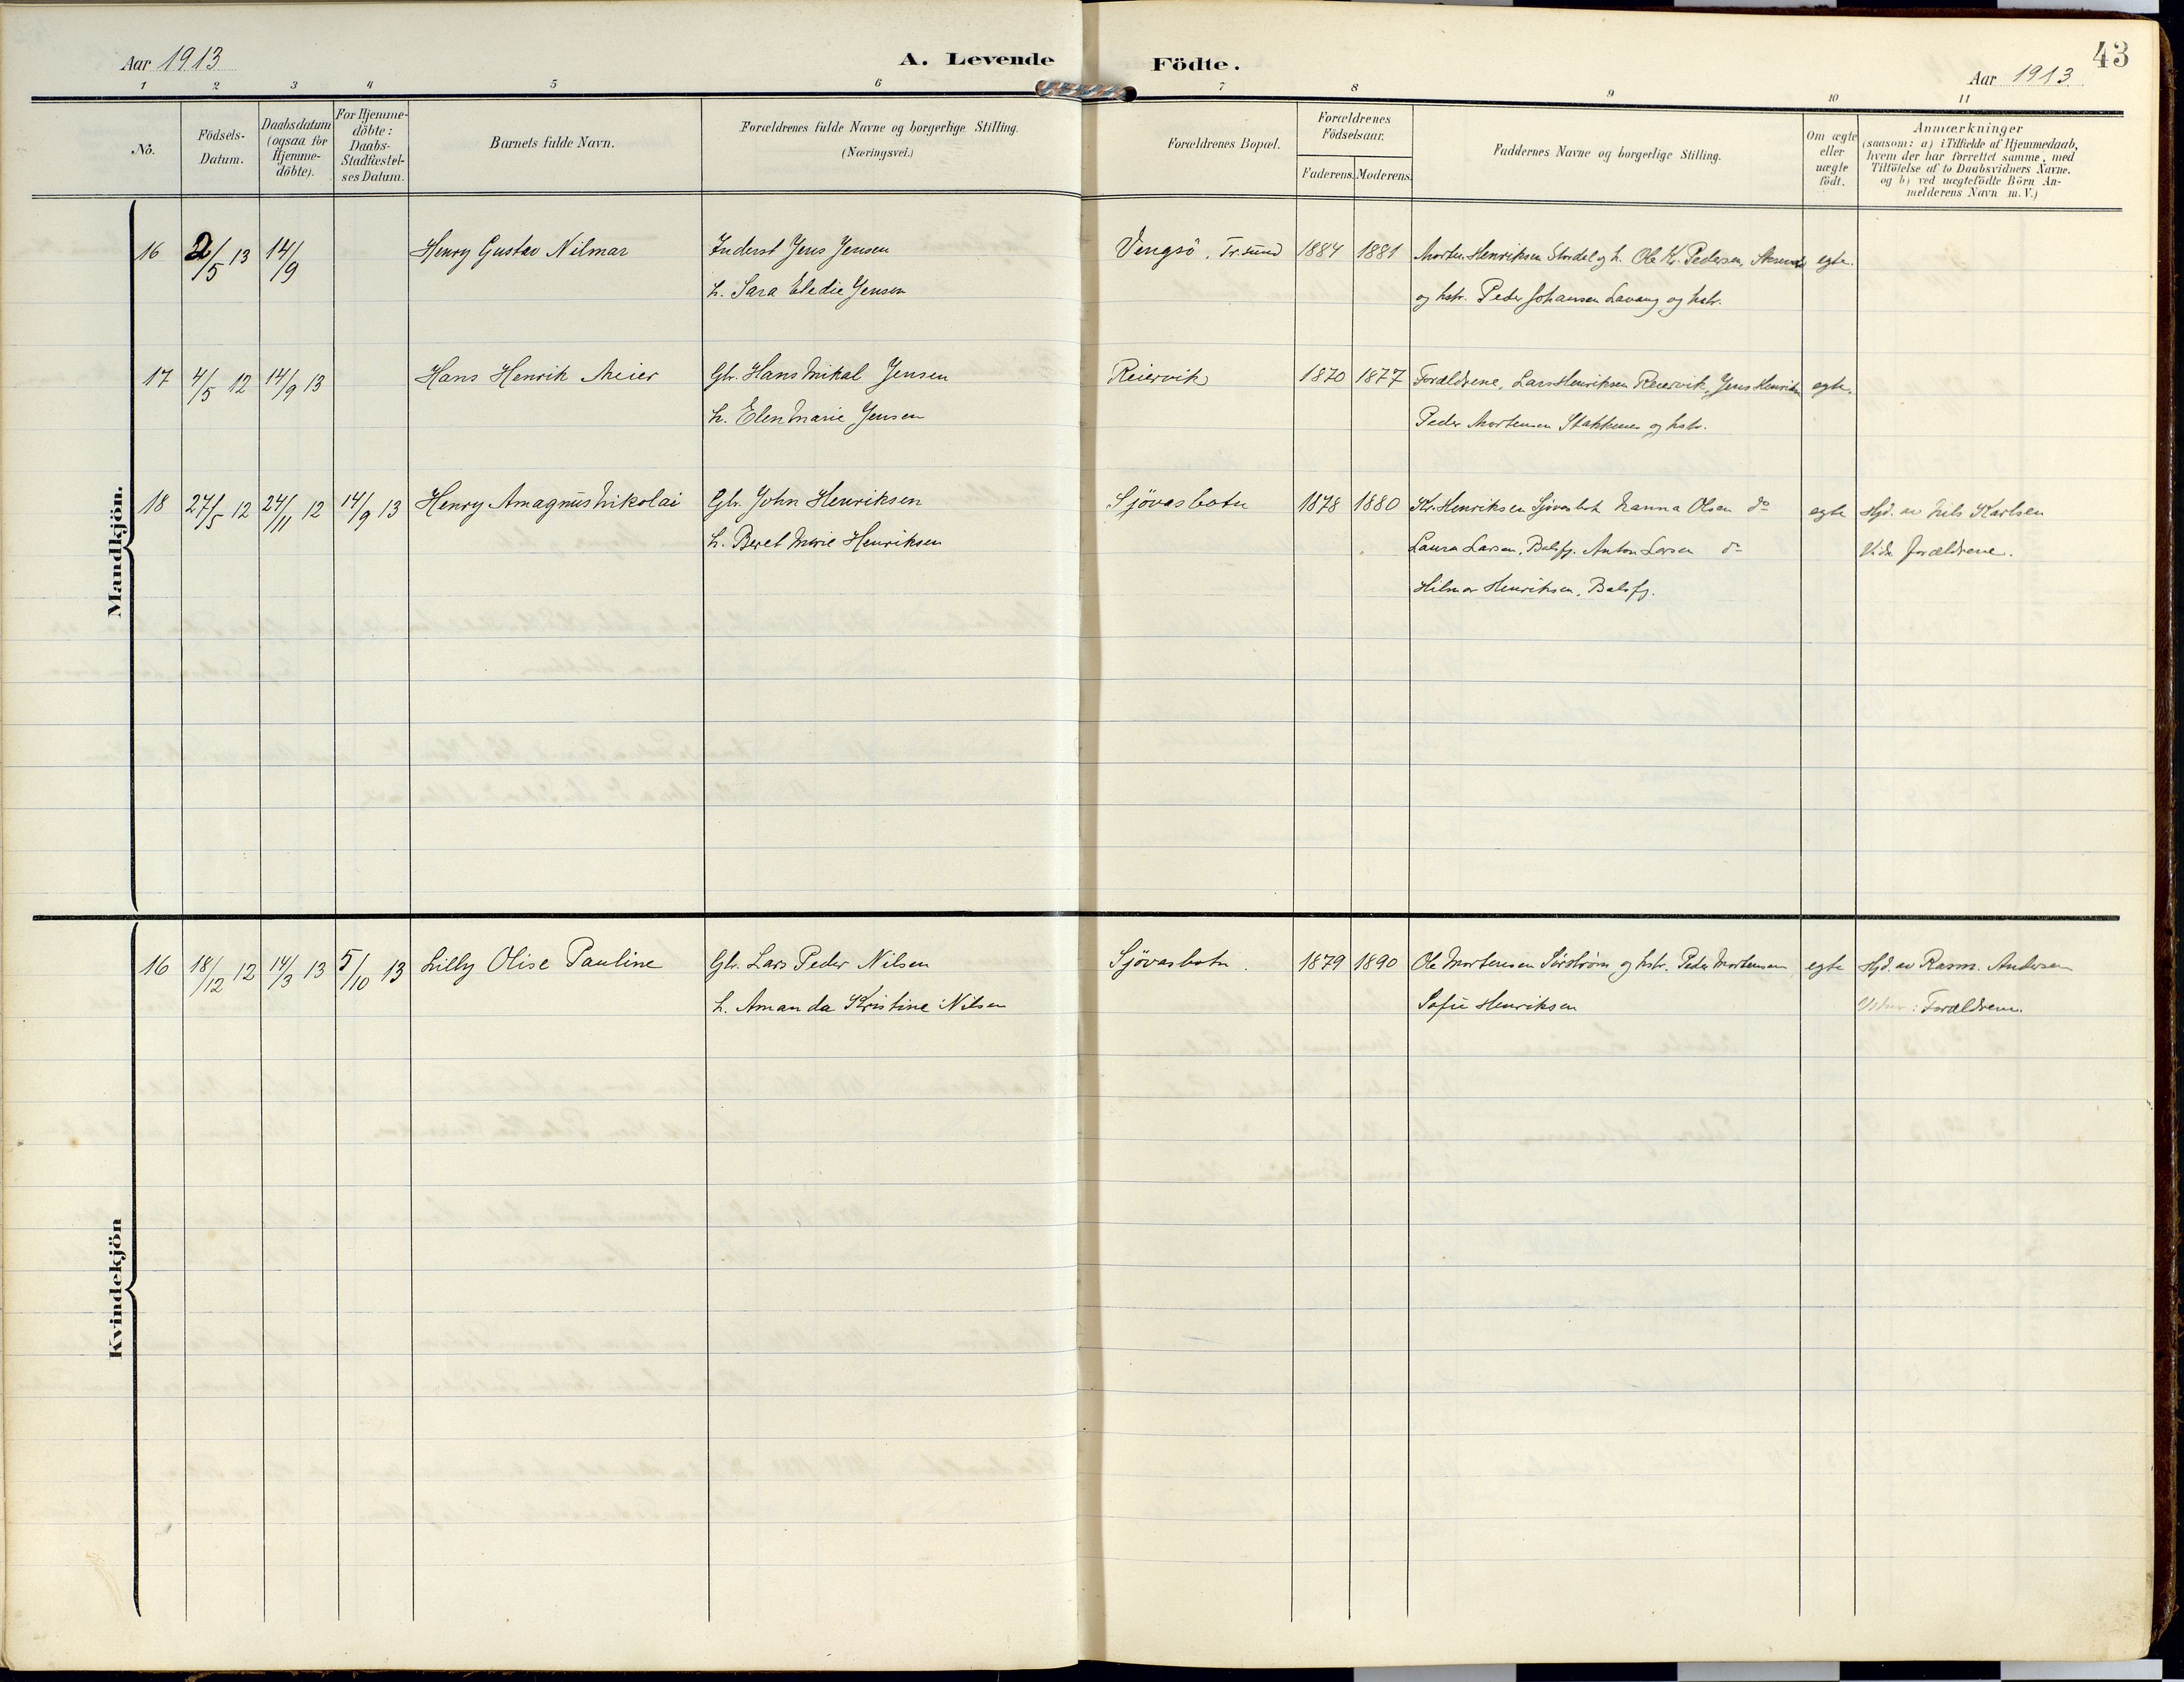 Aar 1913
A. Levende Födte.
43
Aar 1913
1 2 3 4 5 6 7 8 9 10 11
No.
Födsels-Datum.
Daabsdatum (ogsaa for Hjemme-döbte).
For Hjemme-döbte: Daabs-Stadfæstel-ses Datum.
Barnets fulde Navn.
Forældrenes fulde Navne og borgerlige Stilling.
(Næringsvei.)
Forældrenes Bopæl.
Forældrenes Födselsaar.
Faderens. Moderens.
Faddernes Navne og borgerlige Stilling.
Om ægte eller uægte födt.
Anmærkninger
(saasom: a) i Tilfælde af Hjemmedaab,
hvem der har forrettet samme, med
Tilföielse af to Daabsvidners Navne.
og b) ved uægtefödte Börn An-
melderens Navn m. V.)
Mandkjön.
16 2/5 13 14/9 Henry Gustav Nilmar Inderst Jens Jensen Vengsö, Tr.sund 1884 1881 Morten Henriksen Stordal og h. Ole Kr. Pedersen, egte.
h. Sara Eledie Jensen og hstr. Peder Johansen Lavang og hstr.
17 4/5 12 14/9 13 Hans Henrik Meier Gbr. Hans Mikal Jensen Reiervik 1870 1877 Forældrene, Lars Henriksen Reiervik, Jens Henriksen egte.
h. Elen Marie Jensen Peder Mortensen Stakkenes og hstr.
18 27/5 12 24/11 12 14/9 13 Henry Amagnus Nikolai Gbr. John Henriksen Sjövasbotn 1878 1880 Kr. Henriksen Sjövasbot Nanna Olsen do egte Hjd. av Nils Karlsen
h. Beret Marie Henriksen Laura Larsen, Balsfj. Anton Larsen do Vidn forældrene.
Hilmar Henriksen, Balsfj.
Kvindekjön
16 18/12 12 14/3 13 5/10 13 Lilly Olise Pauline Gbr. Lars Peder Nilsen Sjövasbotn. 1879 1890 Ole Mortensen Sörström og hstr. Peder Mortensen egte Hjd. av Rasm. Andersen
h. Amanda Kristine Nilsen Sofie Henriksen Vidner: Forældrene.